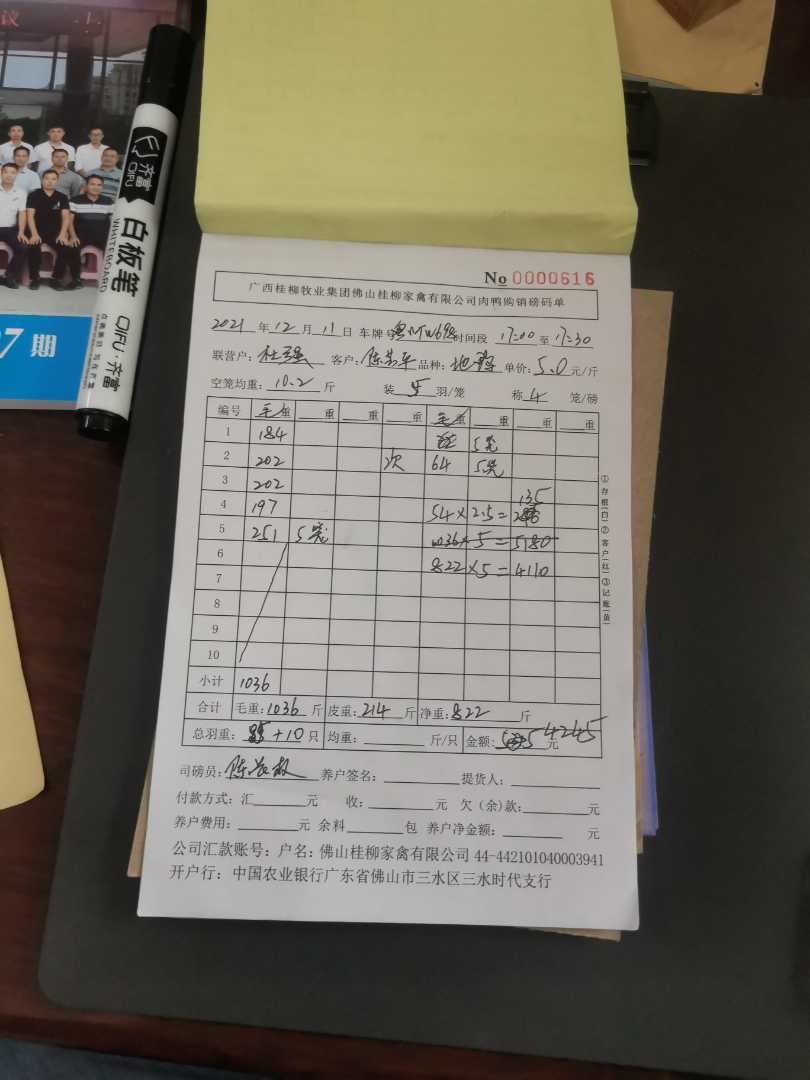 议
07期
齐富
QIFU
白板笔
WHITEBOARD
QIFU·齐富
No 0000616
广西桂柳牧业集团佛山桂柳家禽有限公司肉鸭购销磅码单
2021 年 12 月 11 日 车牌号 时间段 17:00 至 17:30
联营户: 杜强 客户: 陈 平 品种: 单价: 5.0 元/斤
空笼均重: 10.2 斤 装 5 羽/笼 称 4 笼/磅
编号 毛重 重 重 重 毛重 重 重 重
1 184 5笼
2 202 次 64 5笼
3 202 135
4 197 54×2.5=
5 251 5笼 1036×5=5180
6 822×5=4110
7
8
9
10
小计 1036
合计 毛重: 1036 斤 皮重: 214 斤 净重: 822 斤
总羽重: +10 只 均重: 斤/只 金额: 4245 元
司磅员: 陈 养户签名: 提货人:
付款方式: 汇 元 收: 元 欠(余)款: 元
养户费用: 元 余料 包 养户净金额: 元
公司汇款账号: 户名: 佛山桂柳家禽有限公司 44-442101040003941
开户行: 中国农业银行广东省佛山市三水区三水时代支行
①存根(白)②客户(红)③记账(黄)